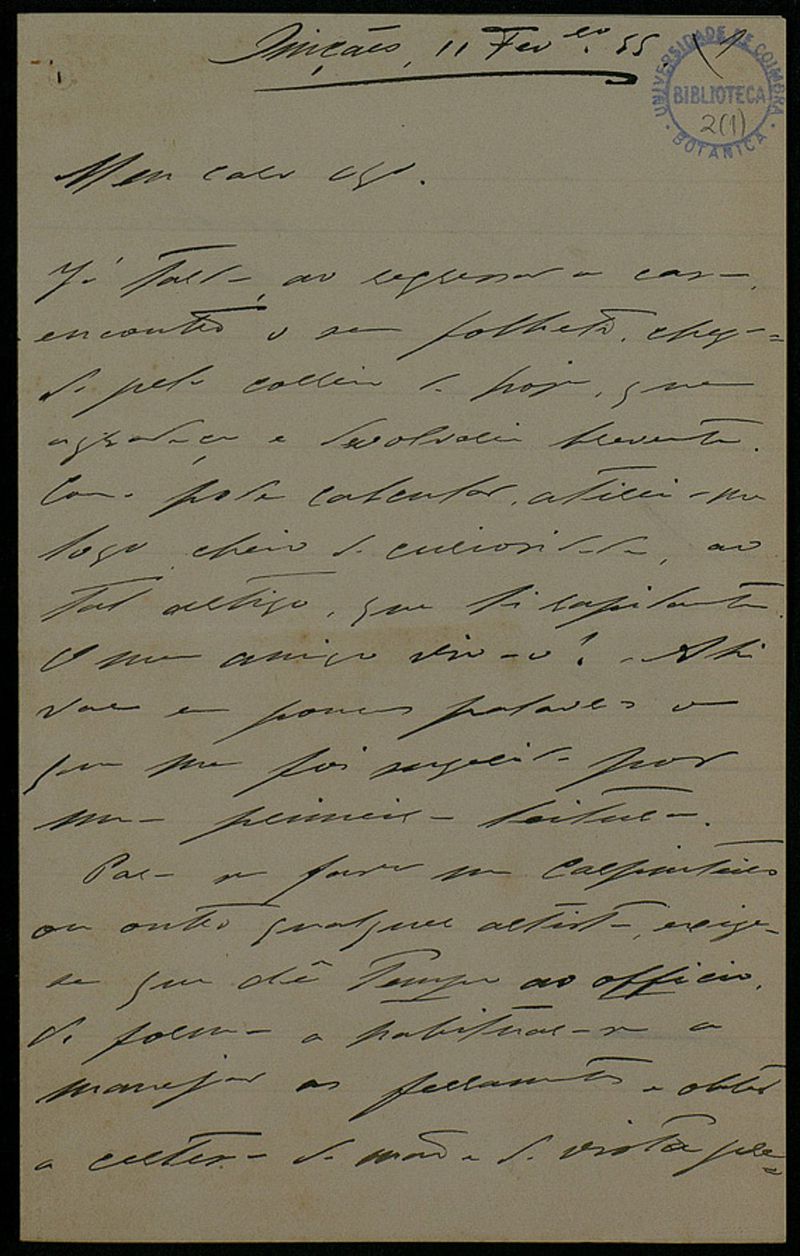 11 Fev.ro 55.
UNIVERSIDADE DE COIMBRA
BIBLIOTECA
2(1)
BOTANICA
Meu caro
Já tarde, ao regressar a casa,
encontro o seu folheto, chega-
do pelo correio de hoje, que
agradeço e devolverei brevemente.
Como pode calcular, atirei-me
logo, cheio de curiosidade, ao
tal artigo, que li
O meu amigo viu-o? Ahi
vae em poucas palavras o
que me foi sugerido por
uma primeira leitura.
Para se fazer um carpinteiro
ou outro qualquer artista, exige-
se que dê tempo ao officio,
de forma a habituar-se a
manejar as ferramentas e obter
a certeza de mão e de vista